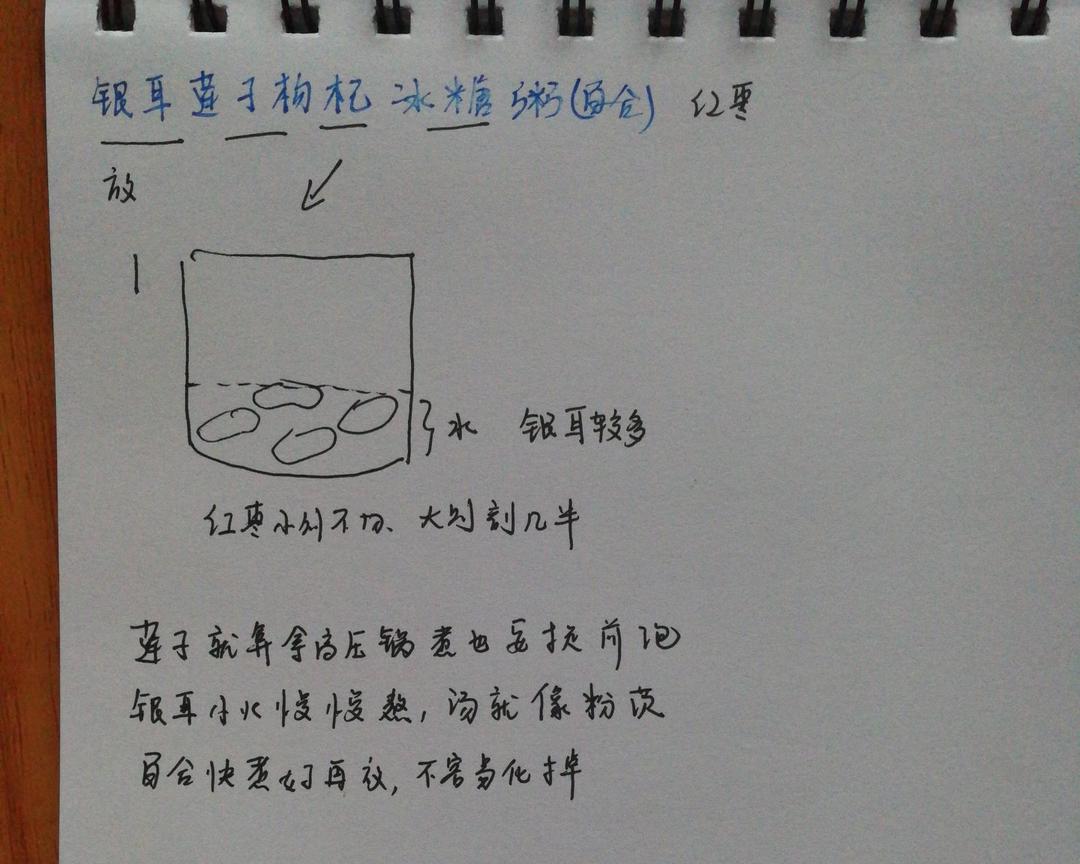 银耳莲子枸杞冰糖粥(百合) 红枣
放
1
水 银耳较多
红枣小则不切、大则割几半
莲子就算拿高压锅煮也要提前泡
银耳小火慢慢熬,汤就像粉茨
百合快煮好再放,不容易化掉